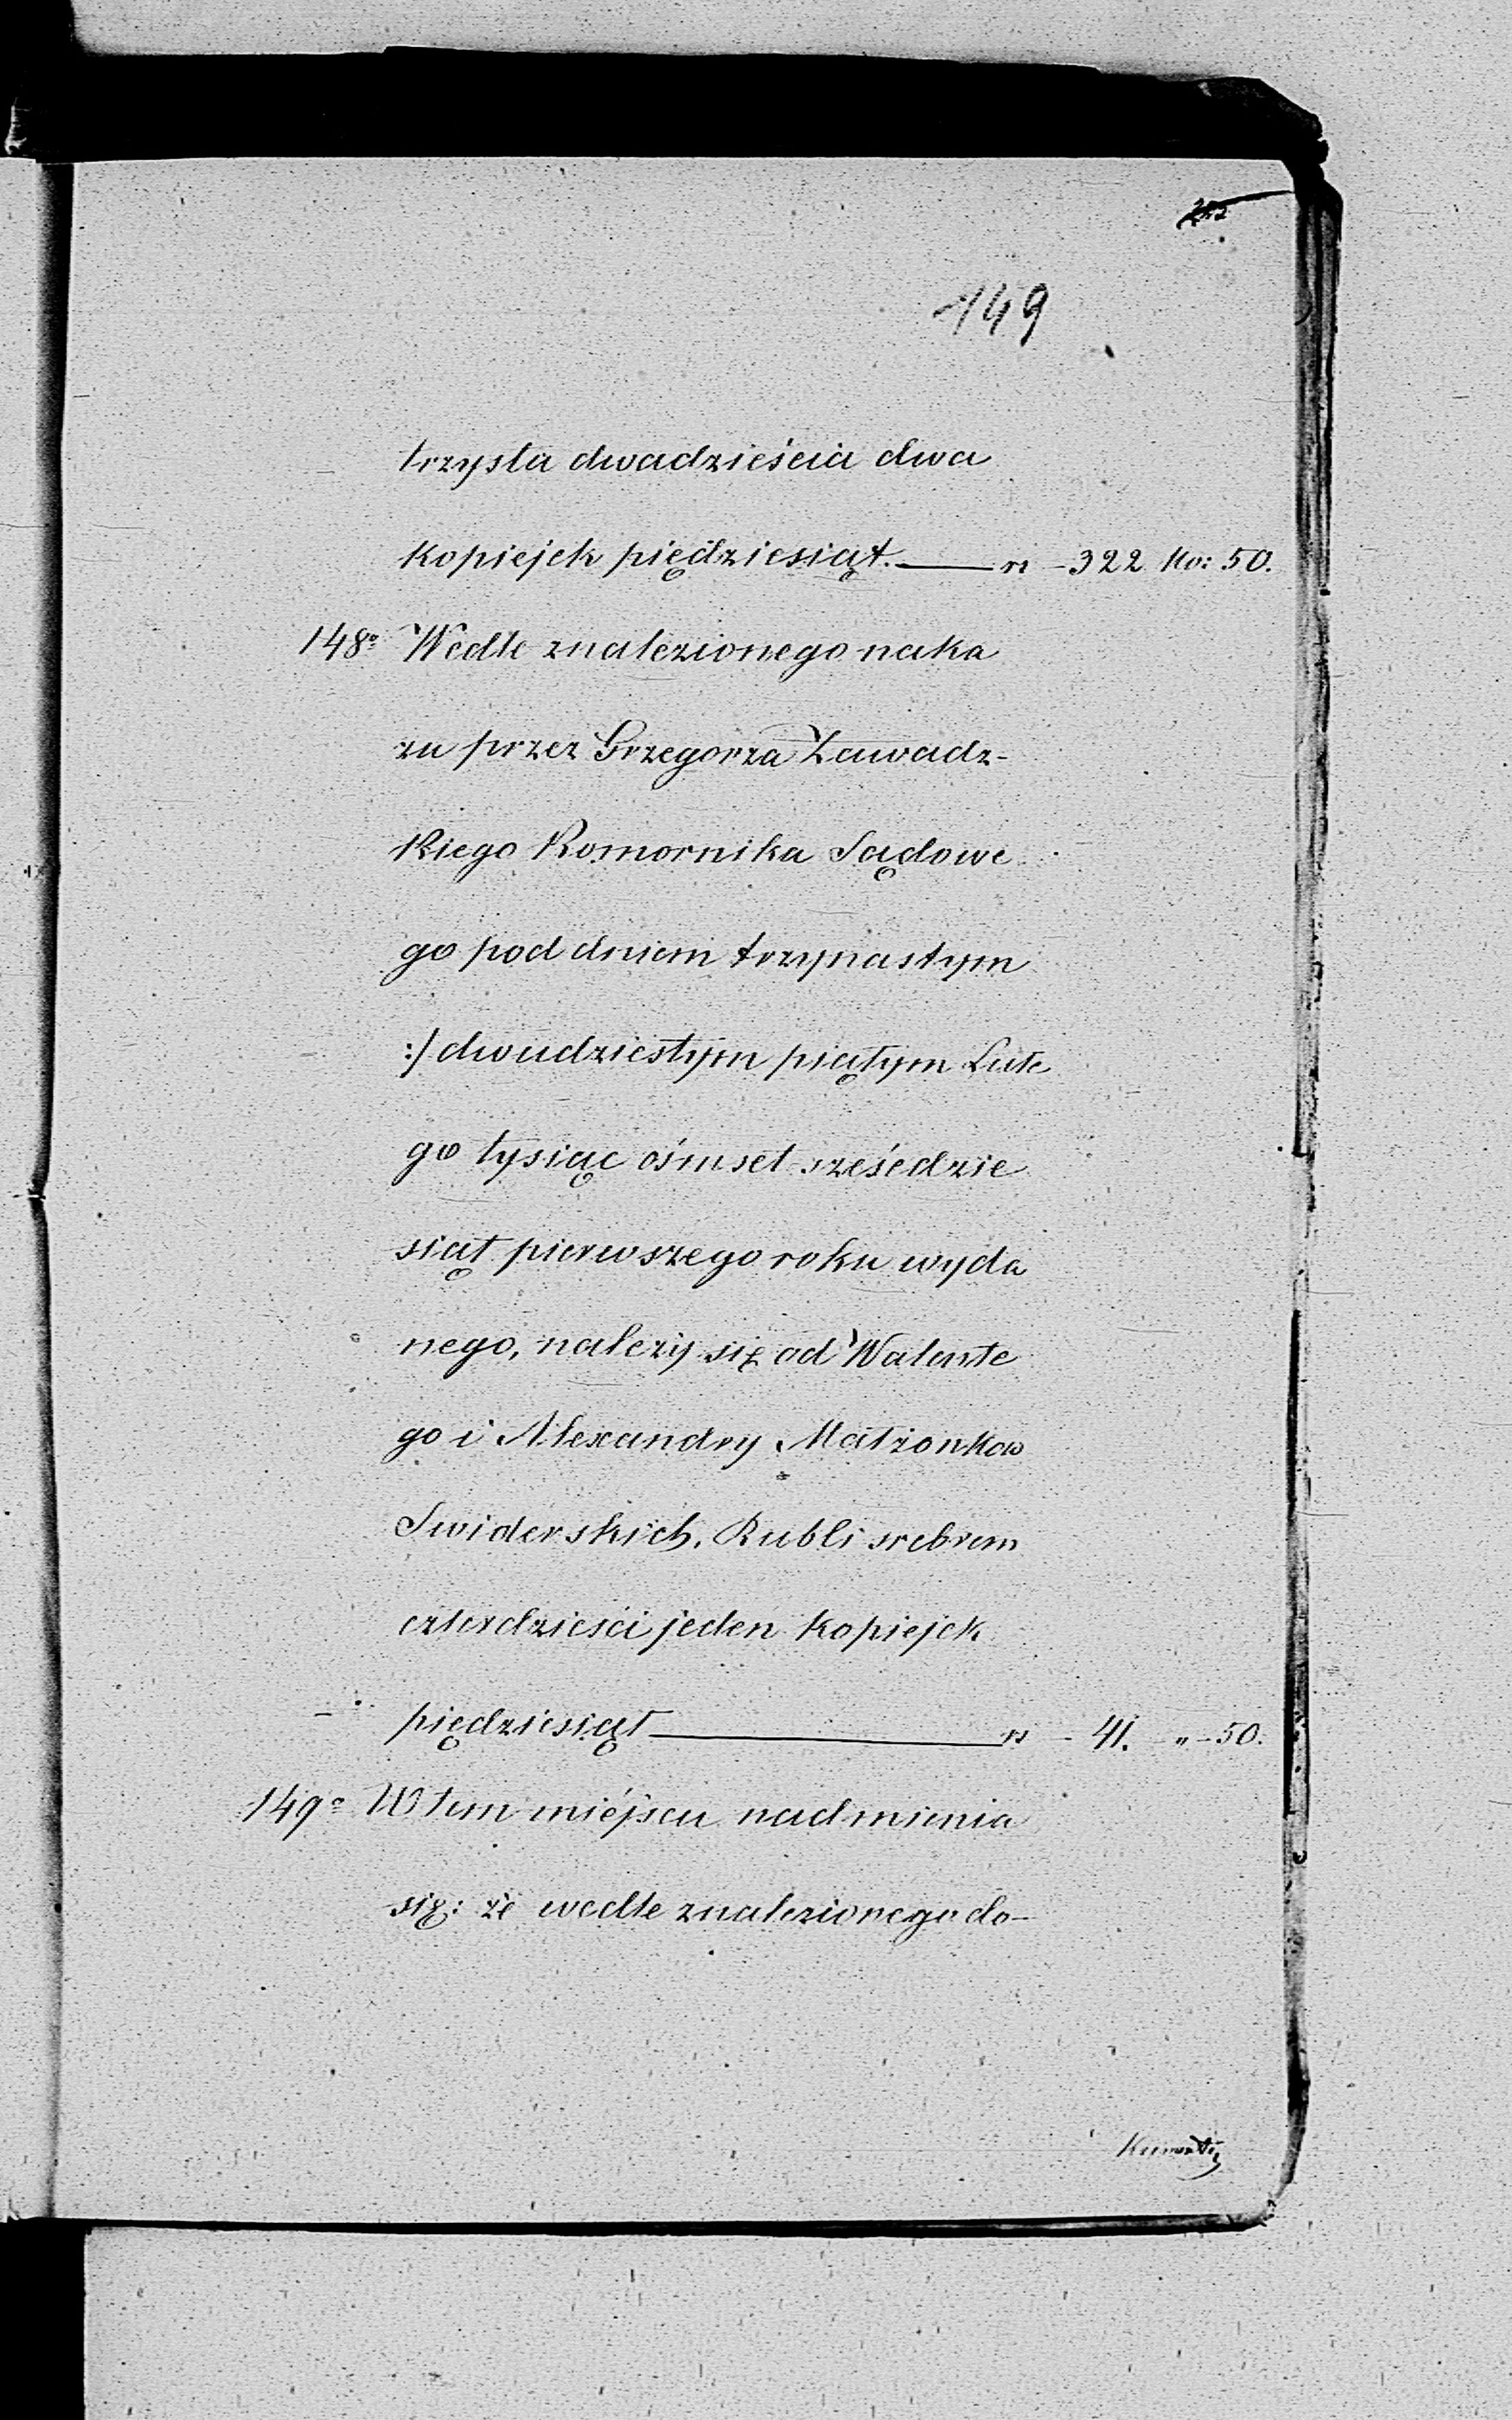 149
trzysta dwadzieścia dwa
kopiejek pięćdziesiąt. — rs - 322 Ko: 50.
148o Wedle znalezionego naka
zu przez Grzegorza Zawadz-
kiego Komornika Sądowe
go pod dniem trzynastym
:/ dwudziestym piątym Lute
go tysiąc ośmset sześćdzie
siąt pierwszego roku wyda
nego, należy się od Walente
go i Alexandry Małżonków
Swiderskich, Rubli srebrem
czterdzieści jeden kopiejek
pięćdziesiąt — rs - 41. " - 50.
149o W tem miéjscu nadmienia
się: że wedle znalezionego do-